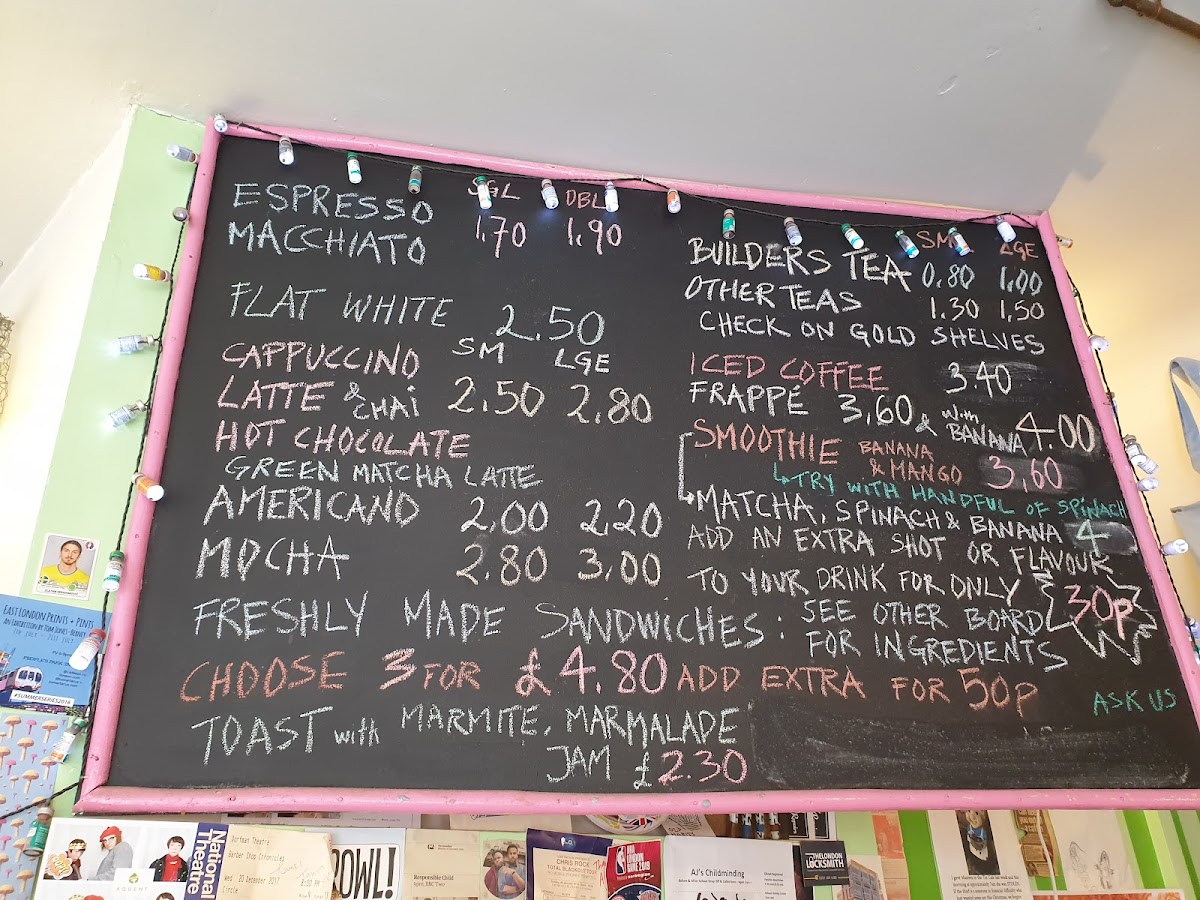 SGL DBL
ESPRESSO
MACCHIATO 1.70 1.90
FLAT WHITE 2.50
SM LGE
CAPPUCCINO
LATTE & CHAI 2.50 2.80
HOT CHOCOLATE
GREEN MATCHA LATTE
AMERICANO 2.00 2.20
MOCHA 2.80 3.00
SM LGE
BUILDERS TEA 0.80 1.00
OTHER TEAS 1.30 1.50
CHECK ON GOLD SHELVES
ICED COFFEE 3.40
FRAPPÉ 3.60 & With BANANA 4.00
SMOOTHIE BANANA & MANGO 3.60
TRY WITH HANDFUL OF SPINACH
MATCHA, SPINACH & BANANA 4
ADD AN EXTRA SHOT OR FLAVOUR
TO YOUR DRINK FOR ONLY 30p
FRESHLY MADE SANDWICHES: SEE OTHER BOARD
FOR INGREDIENTS
CHOOSE 3 FOR £4.80 ADD EXTRA FOR 50p ASK US
TOAST with MARMITE, MARMALADE
JAM £2.30
EAST LONDON PRINTS + PINTS
AN EXHIBITION BY TOM JONES-BERNEY
#SUMMERSERIES2016
KOGENT
National
Theatre
Dorfman Theatre
Barber Shop Chronicles
Wed 20 December 2017
Circle
OWL!
Responsible Child
9pm, BBC Two
CHRIS ROCK
TOTAL BLACKOUT
NBA
LONDON
GAME 2019
AJ's Childminding
THELONDON
LOCKSMITH